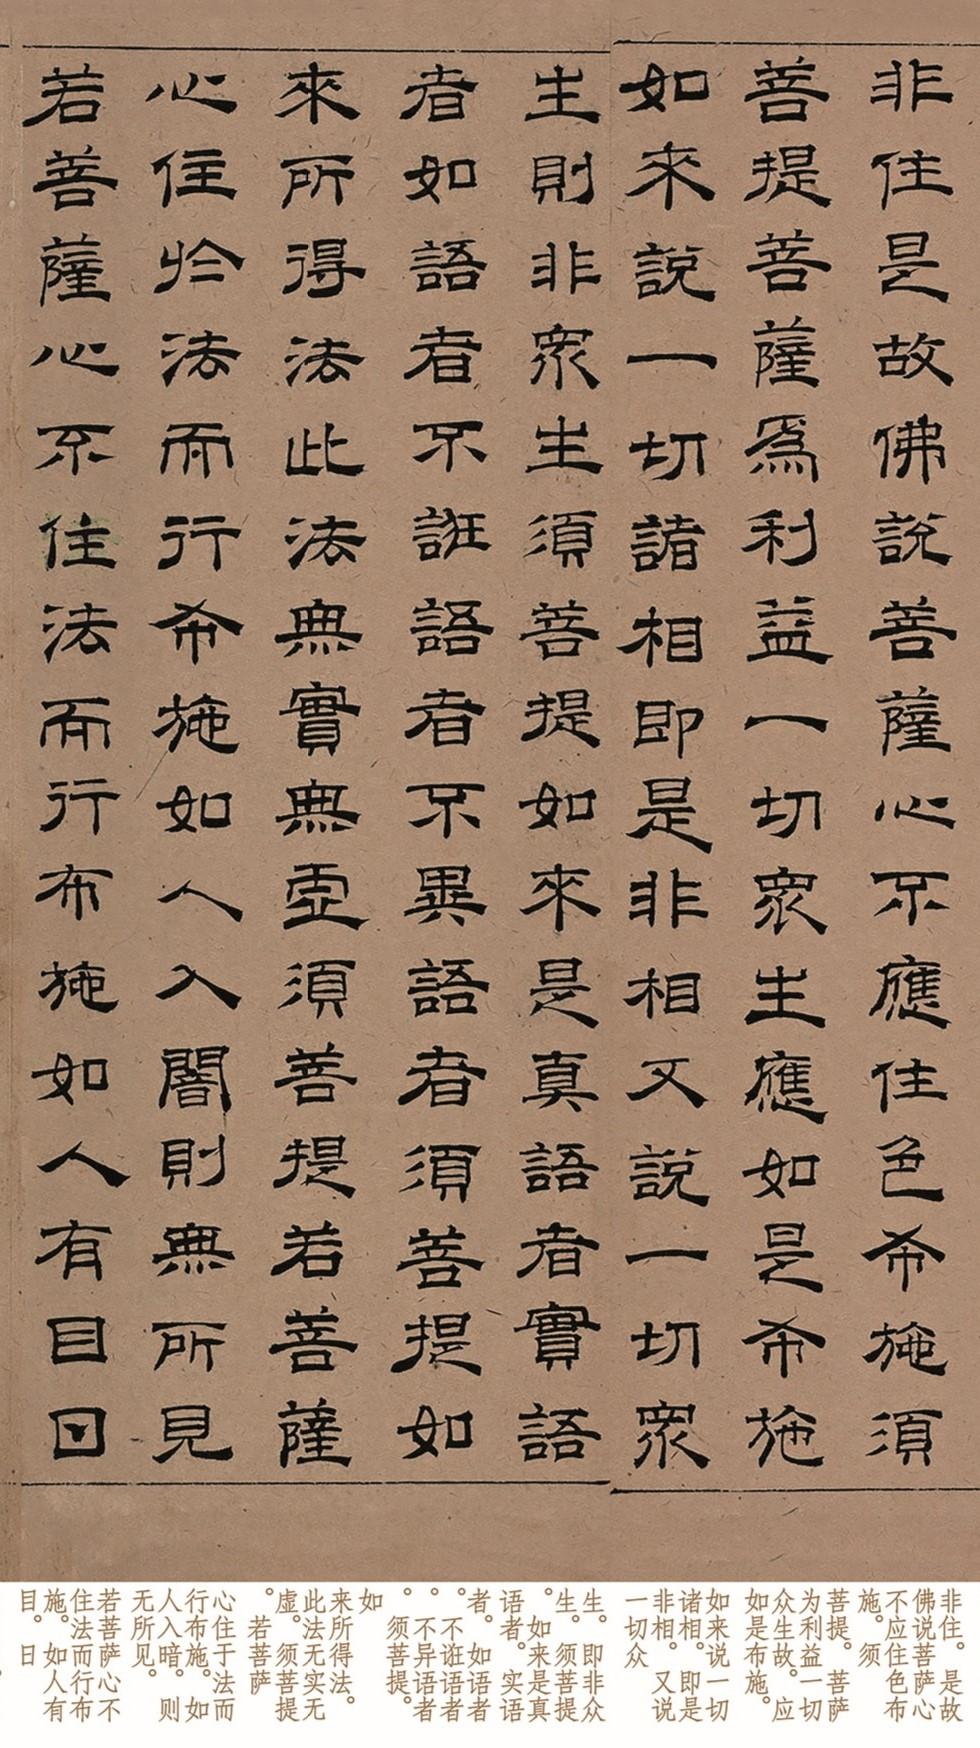 非住是故佛說菩薩心不應住色布施須
菩提菩薩爲利益一切衆生應如是布施
如來說一切諸相即是非相又說一切衆
生則非衆生須菩提如來是真語者實語
者如語者不誑語者不異語者須菩提如
來所得法此法無實無虛須菩提若菩薩
心住於法而行布施如人入闇則無所見
若菩薩心不住法而行布施如人有目日
非住。是故
佛说菩萨心
不应住色布
施。须
菩提。菩萨
为利益一切
众生故。应
如是布施。
如来说一切
诸相。即是
非相。又说
一切众
生。即非众
生。须菩提
。如来是真
语者。实语
者。如语者
。不诳语者
。不异语者
。须菩提。
如
来所得法。
此法无实无
虚。须菩提
。若菩萨
心住于法而
行布施。如
人入暗。则
无所见。
若菩萨心不
住法而行布
施。如人有
目。日